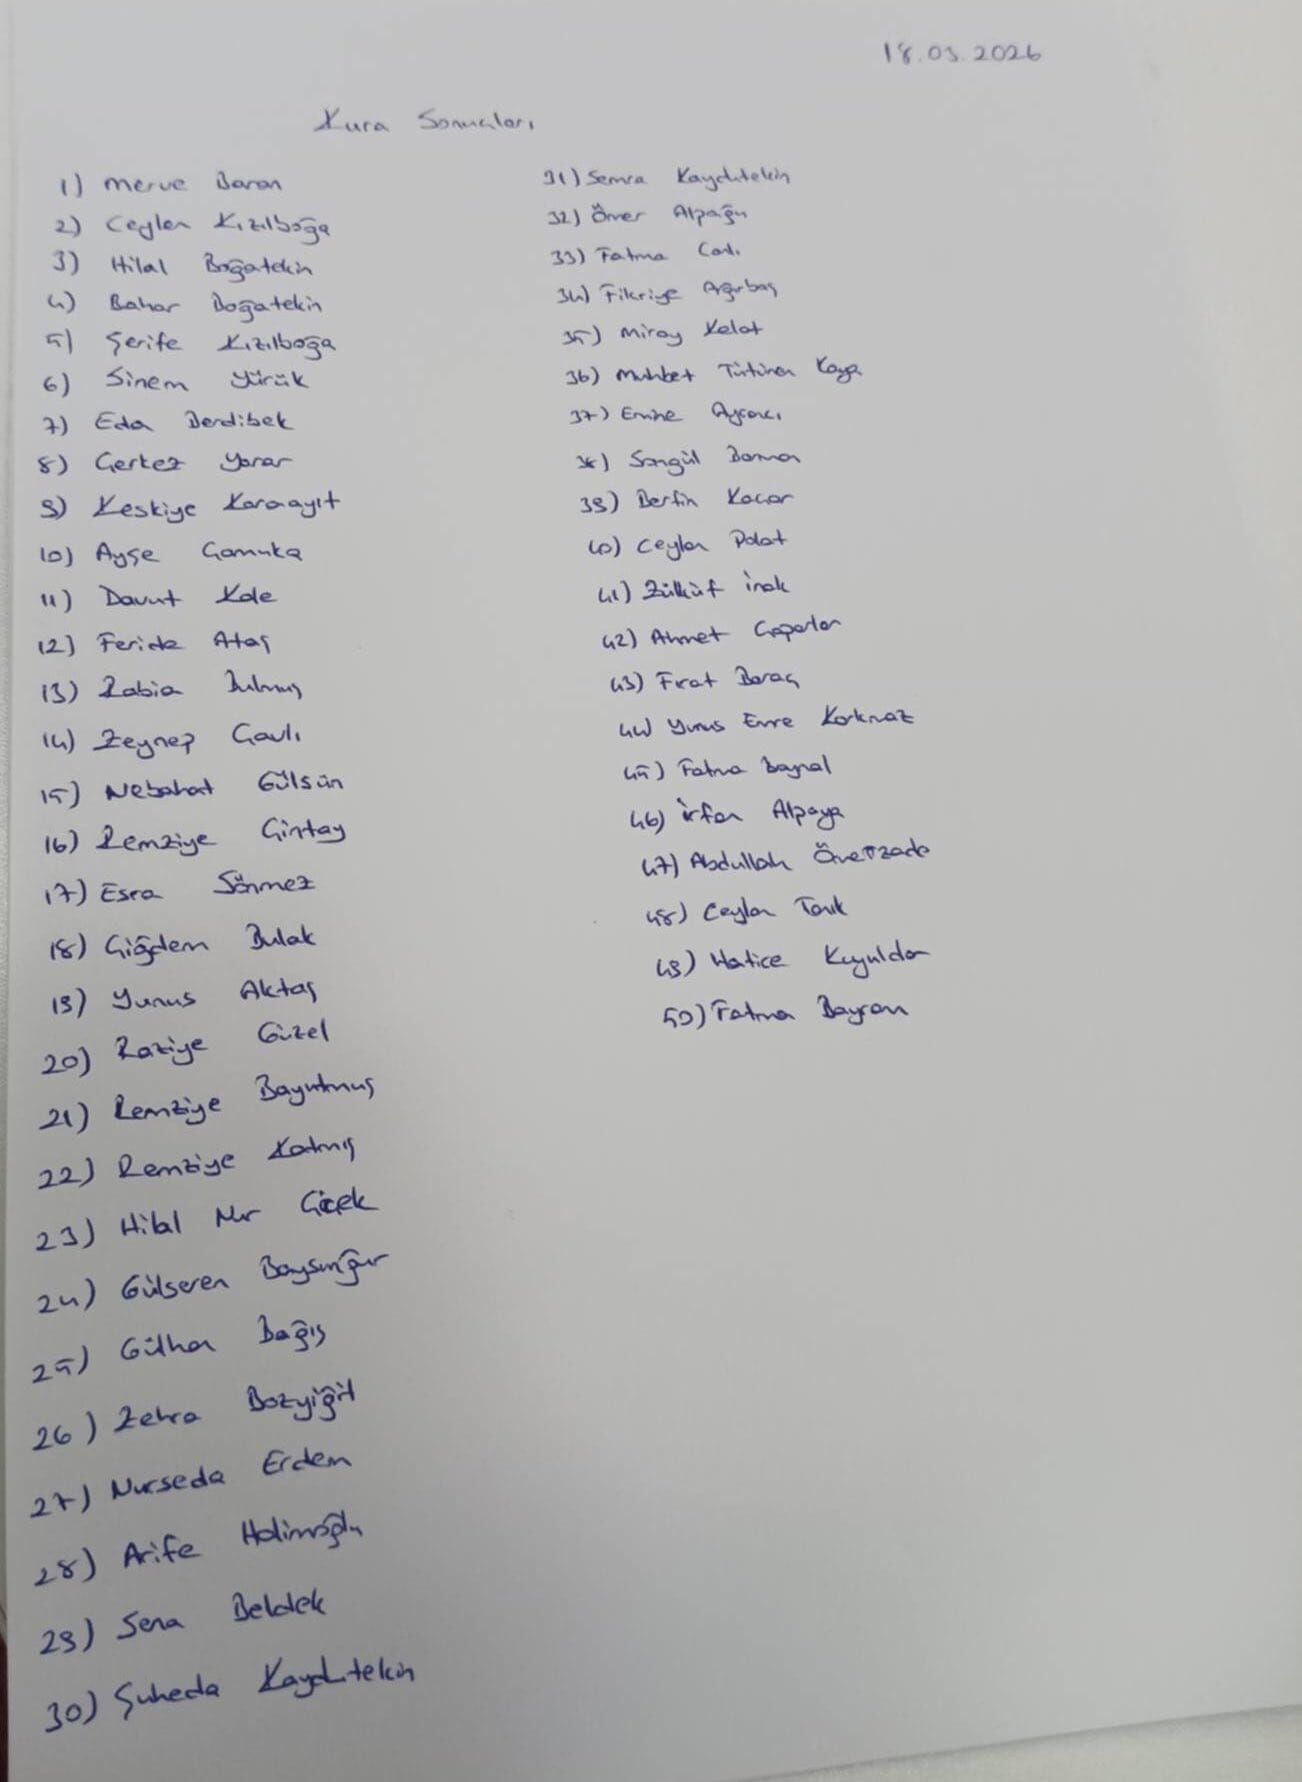 18.03.2026
Kura Sonuçları
1) Merve Baran
2) Ceylan Kızılboğa
3) Hilal Boğatekin
4) Bahar Boğatekin
5) Şerife Kızılboğa
6) Sinem Yürük
7) Eda Derdibek
8) Çerkez Yarar
9) Keskiye Karaayıt
10) Ayşe Çamuka
11) Davut Kale
12) Feride Ataş
13) Rabia Bulmuş
14) Zeynep Çavlı
15) Nebahat Gülsün
16) Remziye Çintay
17) Esra Sönmez
18) Çiğdem Bulak
19) Yunus Aktaş
20) Raziye Güzel
21) Remziye Bayutmuş
22) Remziye Katmış
23) Hilal Nur Çiçek
24) Gülseren Baysunğur
25) Gülhan Bağış
26) Zehra Bozyiğit
27) Nurseda Erdem
28) Arife Halimoğlu
29) Sena Beldek
30) Şuheda Kaydıtekin
31) Semra Kaydıtekin
32) Ömer Alpağu
33) Fatma
34) Fikriye Ağırbaş
35) Miray Kelat
36) Muhbet Kaya
37) Emine Ayrancı
38) Songül
39) Berfin Kaçar
40) Ceylan Polat
41) Zülküf İnak
42) Ahmet Çaparlar
43) Fırat Baraç
44) Yunus Emre Korkmaz
45) Fatma Baynal
46) İrfan Alpaya
47) Abdullah
48) Ceylan Tarık
49) Hatice Kuyuldar
50) Fatma Bayram